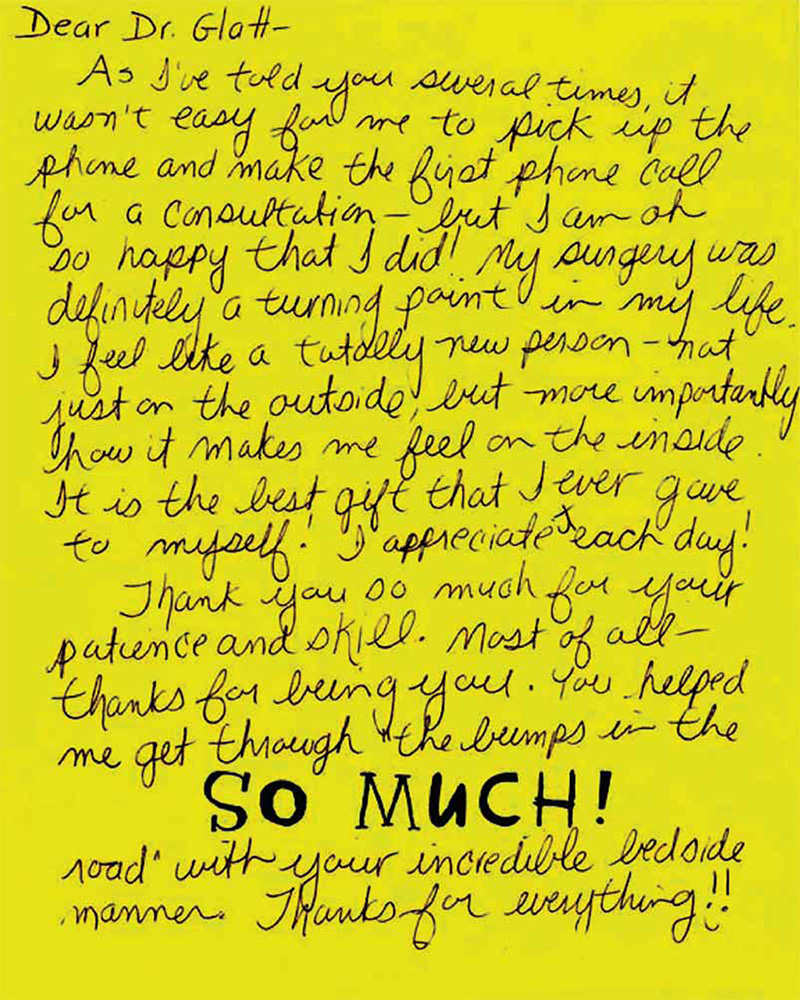 Dear Dr. Glatt-
As I've told you several times, it
wasn't easy for me to pick up the
phone and make the first phone call
for a consultation - but I am oh
so happy that I did! My surgery was
definitely a turning point in my life.
I feel like a totally new person - not
just on the outside, but more importantly
how it makes me feel on the inside.
It is the best gift that I ever gave
to myself! I appreciate it each day!
Thank you so much for your
patience and skill. Most of all -
thanks for being you. You helped
me get through "the bumps in the
SO MUCH!
road" with your incredible bedside
manner. Thanks for everything!!